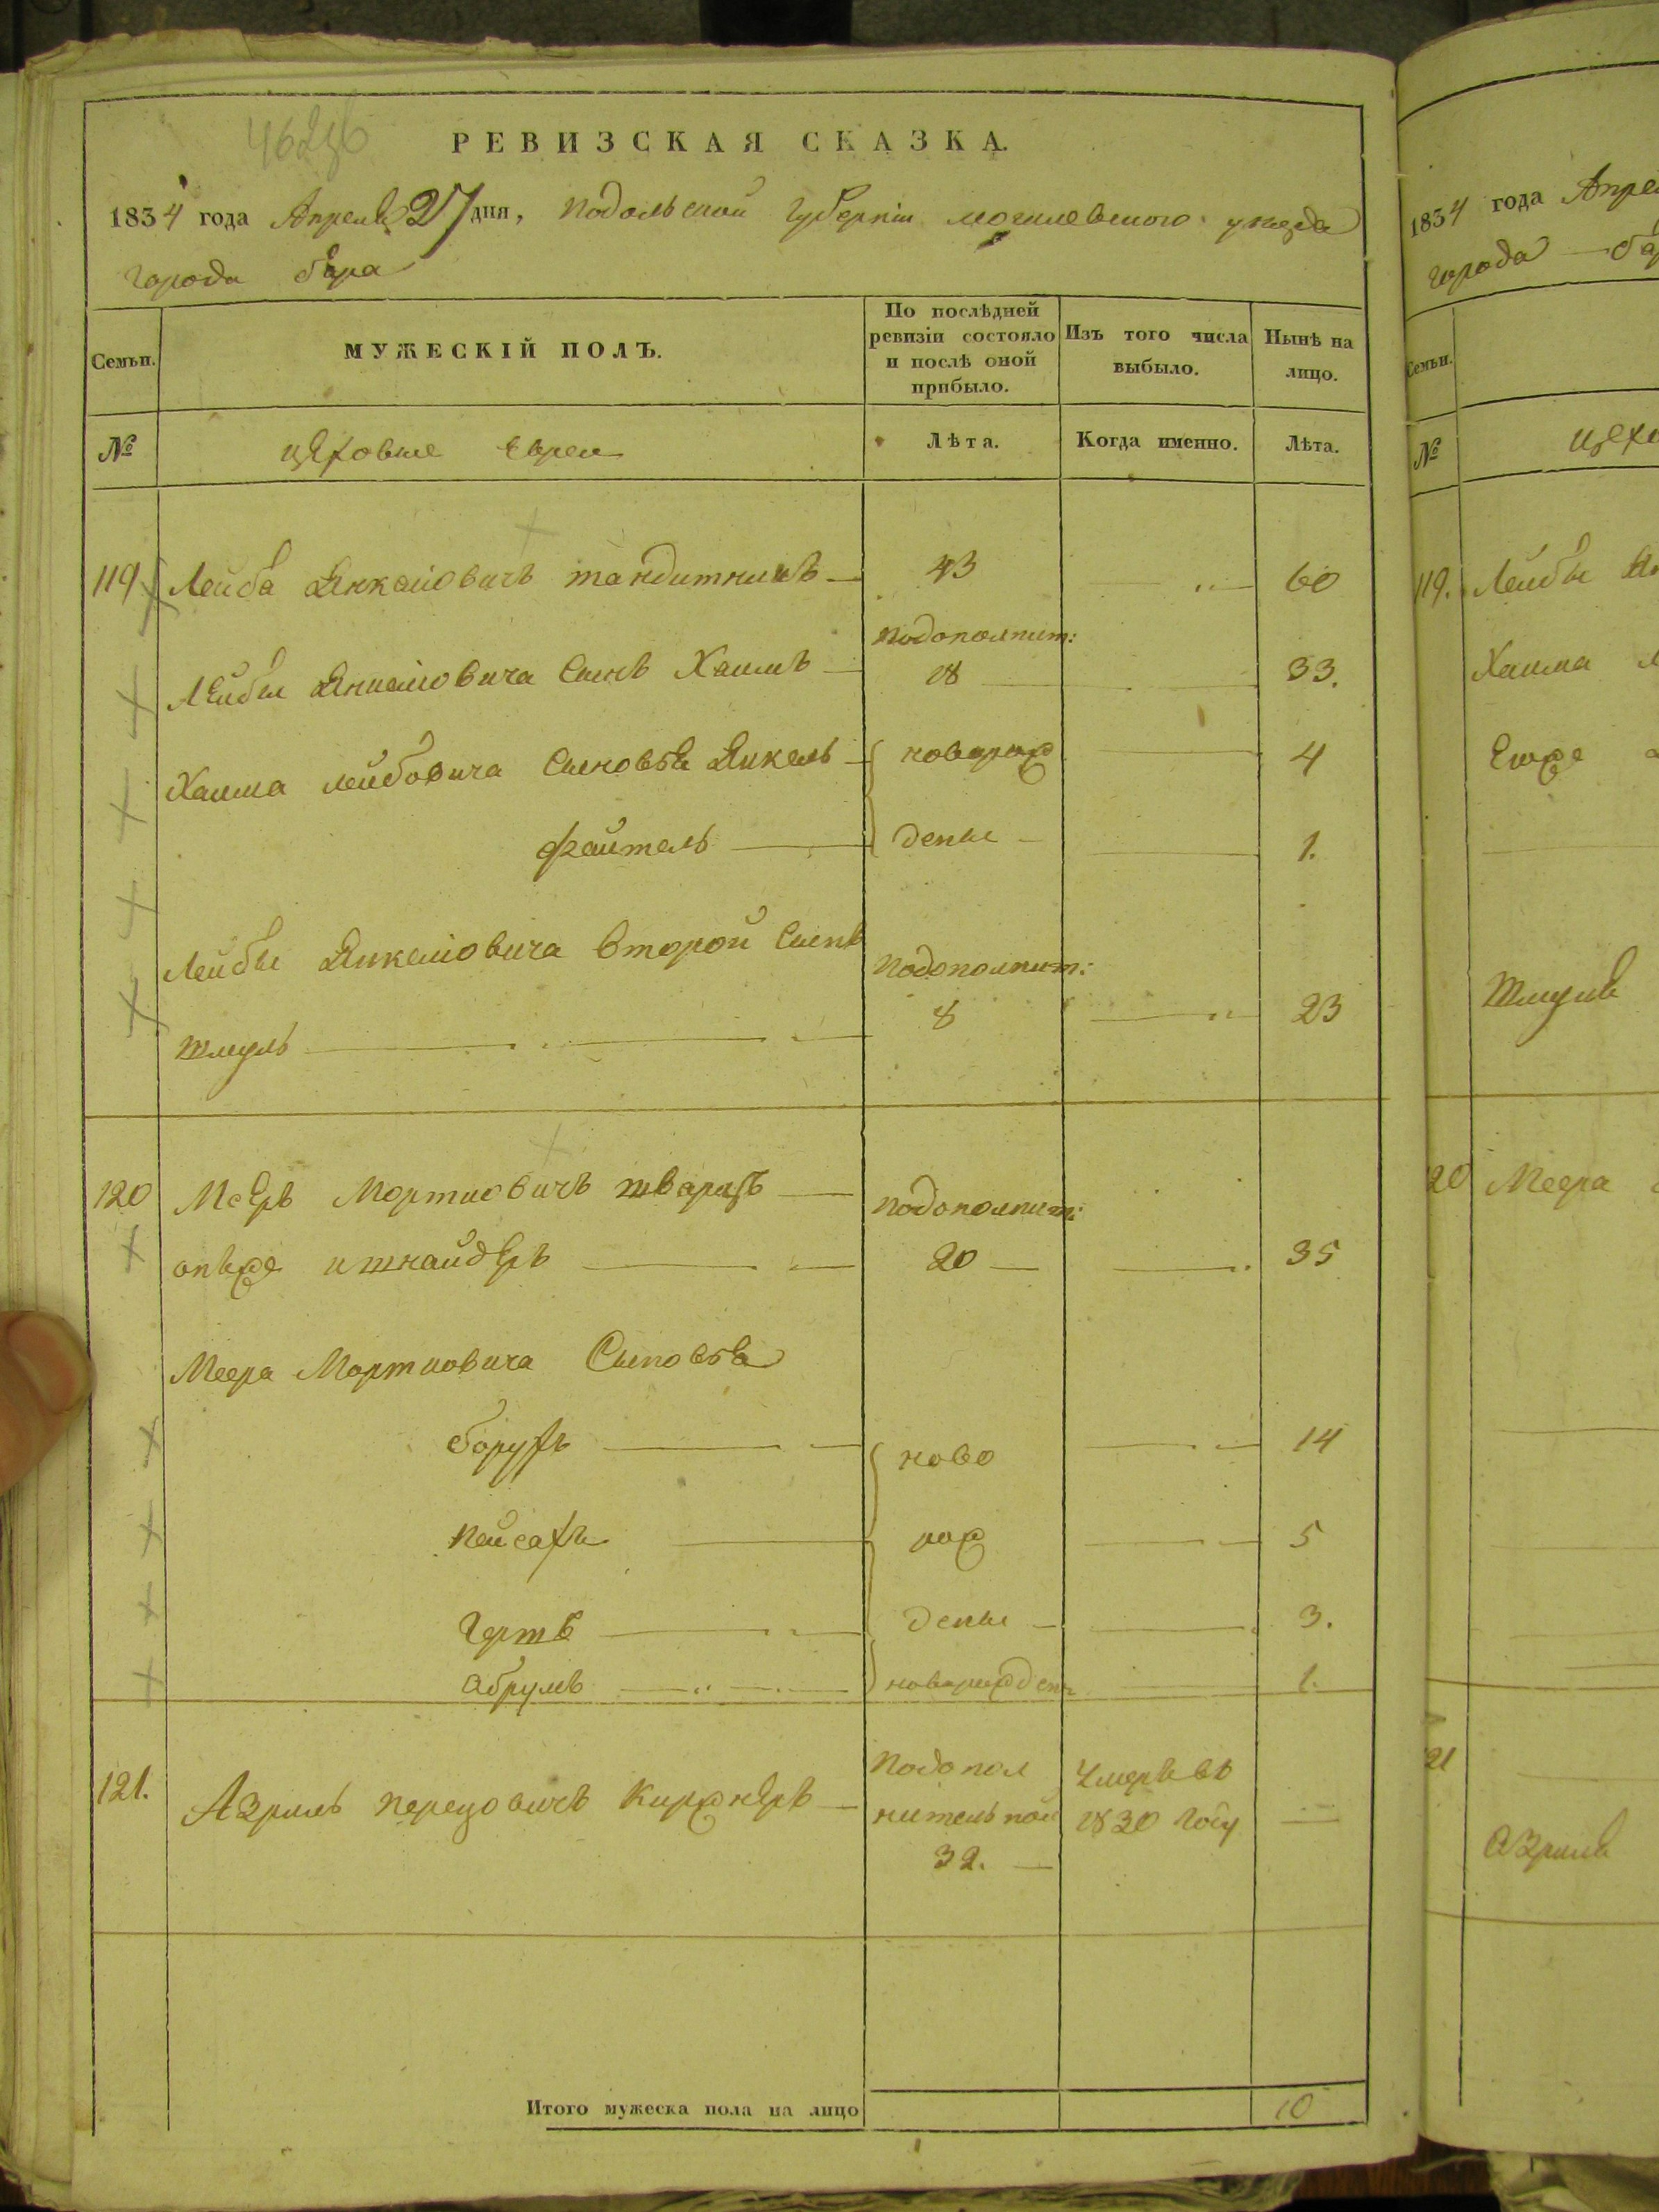 462 об
РЕВИЗСКАЯ СКАЗКА.
1834 года Апреля 27 дня, Подольской Губернiи могилевского уезда
города бара
Семьи.
МУЖЕСКIЙ ПОЛЪ.
По послѣдней ревизiи состояло и послѣ оной прибыло.
Изъ того числа выбыло.
Нынѣ на лицо.
№
цеховые Евреи
Лѣта.
Когда именно.
Лѣта.
119 Лейба Янкелiовичъ тандитникъ 43 60
Лейбы Янкелiовича Сынъ Хаимъ подополнит: 18 33.
Хаима лейбовича Сыновья Янкель новорож 4
файтель деные 1.
Лейбы Янкелiовича второй Сынъ подополнит:
Шмуль 8 23
120 Мееръ Мортковичъ шварцъ подополнит:
онъже ишнайдеръ 20 35
Меера Мортковича Сыновья
борухъ ново 14
пейсахъ рож 5
Гершъ деные 3.
абрумъ новорожден 1.
121. Азриль перецовичъ Киржнеръ подопол Умеръ въ
нительной 1830 Году
32.
Итого мужеска пола на лицо 10
1834 года Апре
города ба
Семьи.
№ цехо
119. Лейбы Ян
Хаима л
Егоже
Шмуля
20 Меера
21
Азриля